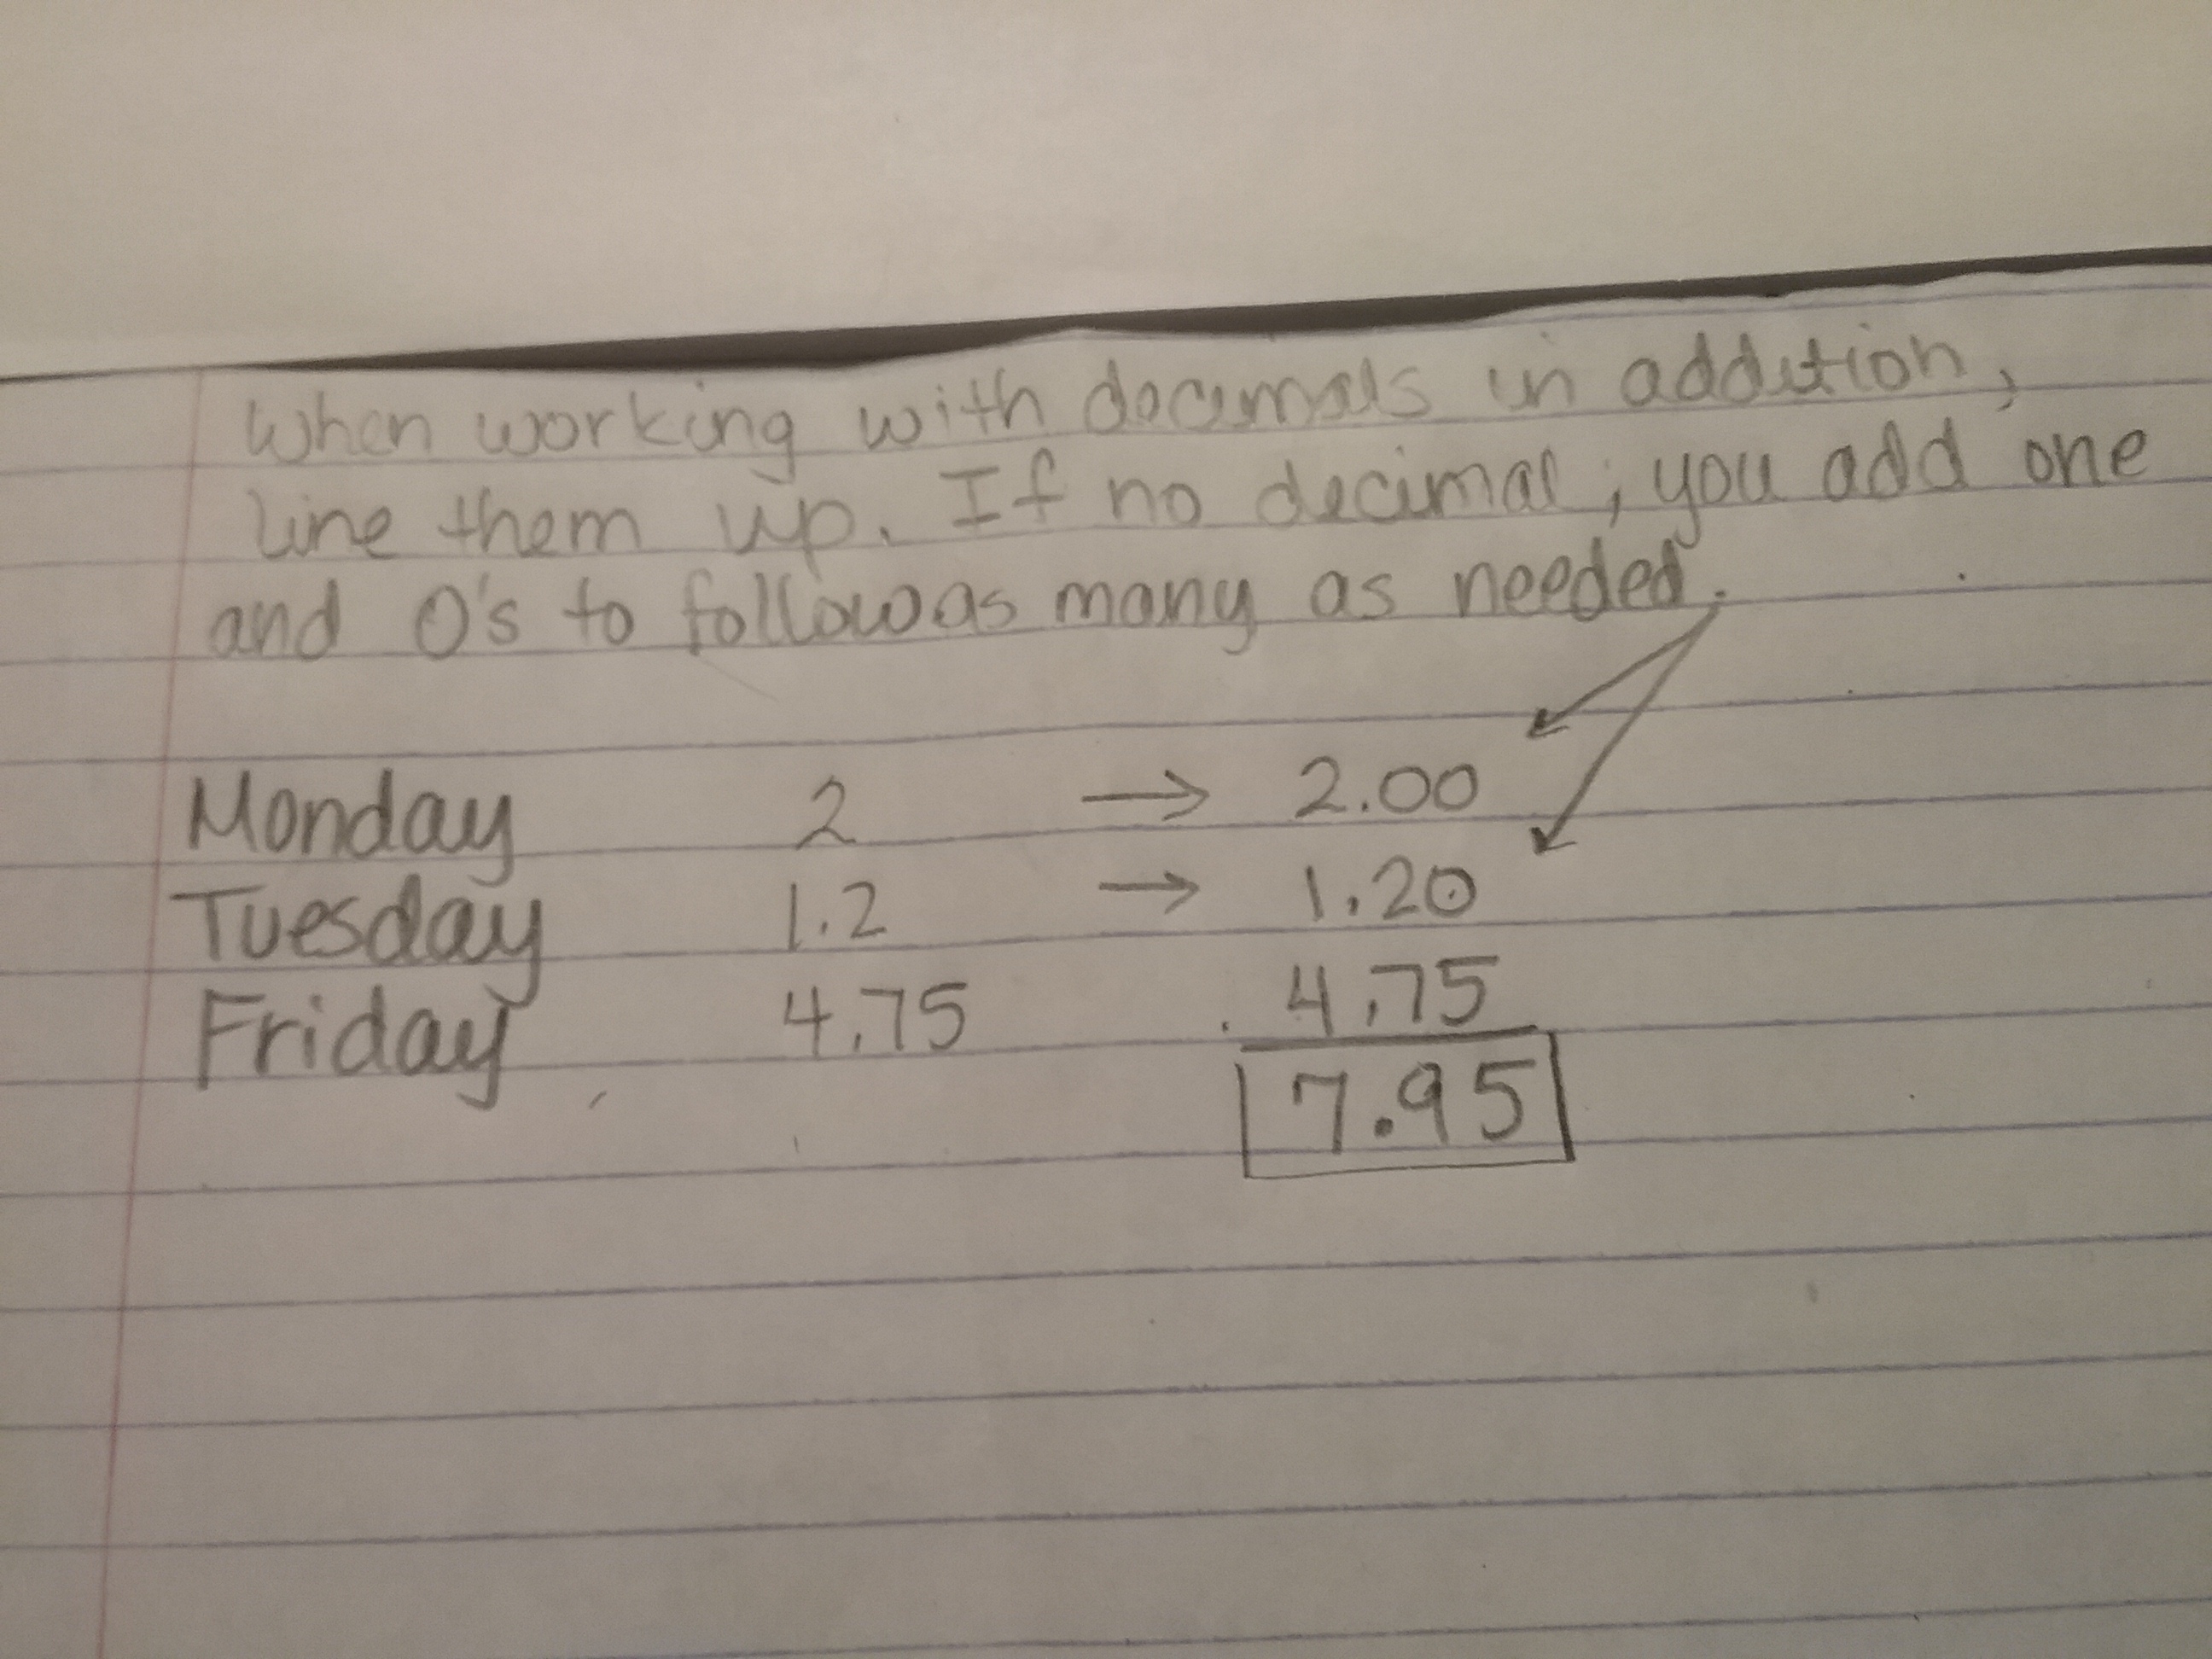 When working with decimals in addition,
line them up. If no decimal, you add one
and 0's to follow as many as needed.
Monday 2 → 2.00
Tuesday 1.2 → 1.20
Friday 4.75 4.75
7.95